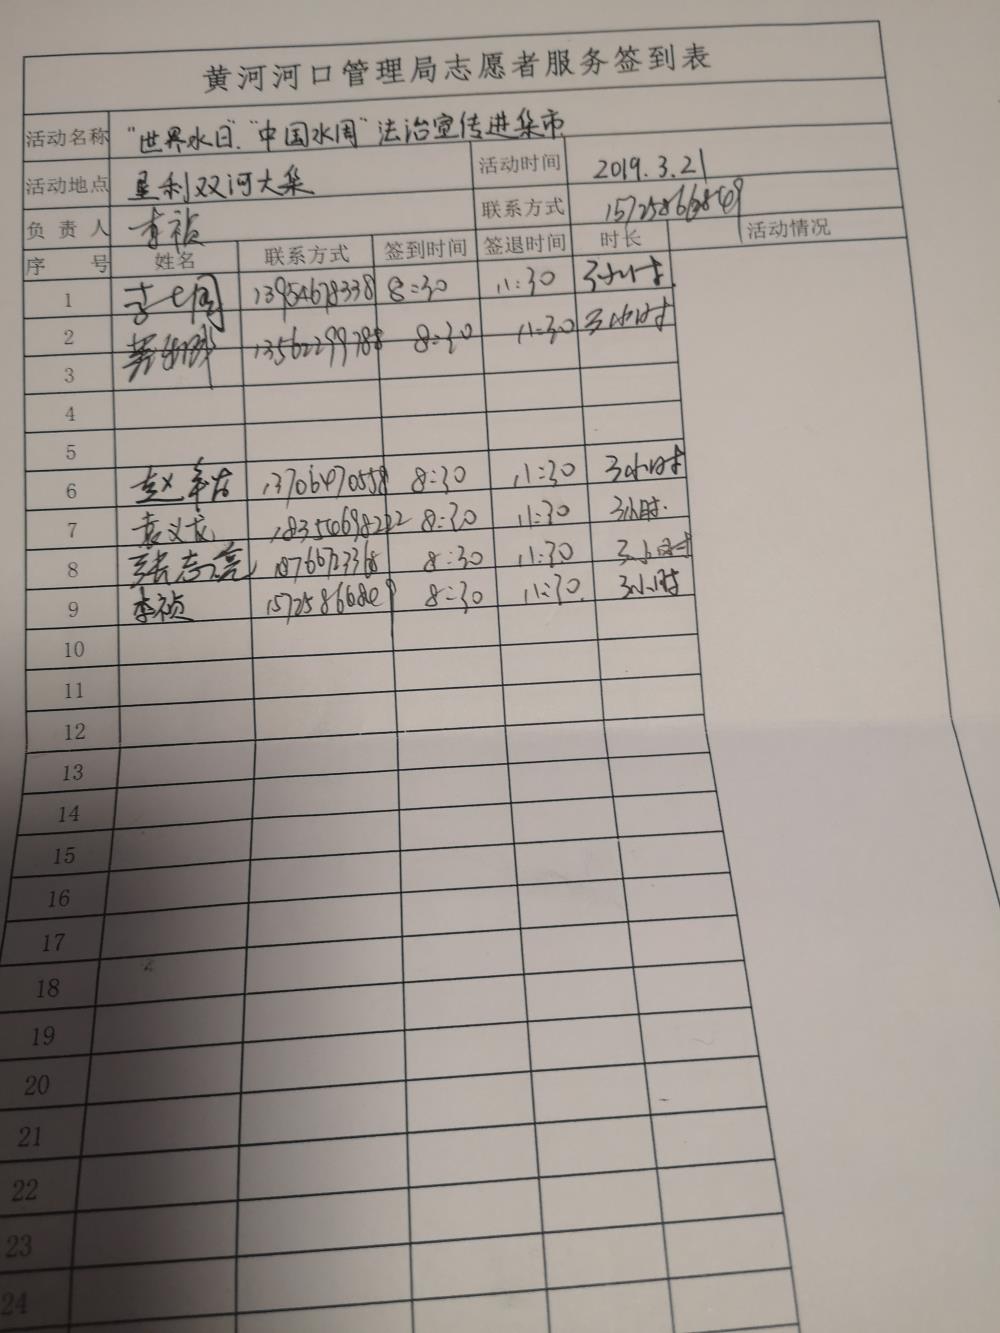 黄河河口管理局志愿者服务签到表
活动名称 "世界水日"、"中国水周"法治宣传进集市
活动地点 垦利双河大集 活动时间 2019.3.21
负责人 李祯 联系方式
序号 姓名 联系方式 签到时间 签退时间 时长 活动情况
1 13954678338 8:30 11:30 3小时
2 13562299788 8:30 11:30 3小时
3
4
5
6 13706470558 8:30 11:30 3小时
7 袁义龙 18354698222 8:30 11:30 3小时
8 张志亮 18766723368 8:30 11:30 3小时
9 李祯 8:30 11:30 3小时
10
11
12
13
14
15
16
17
18
19
20
21
22
23
24